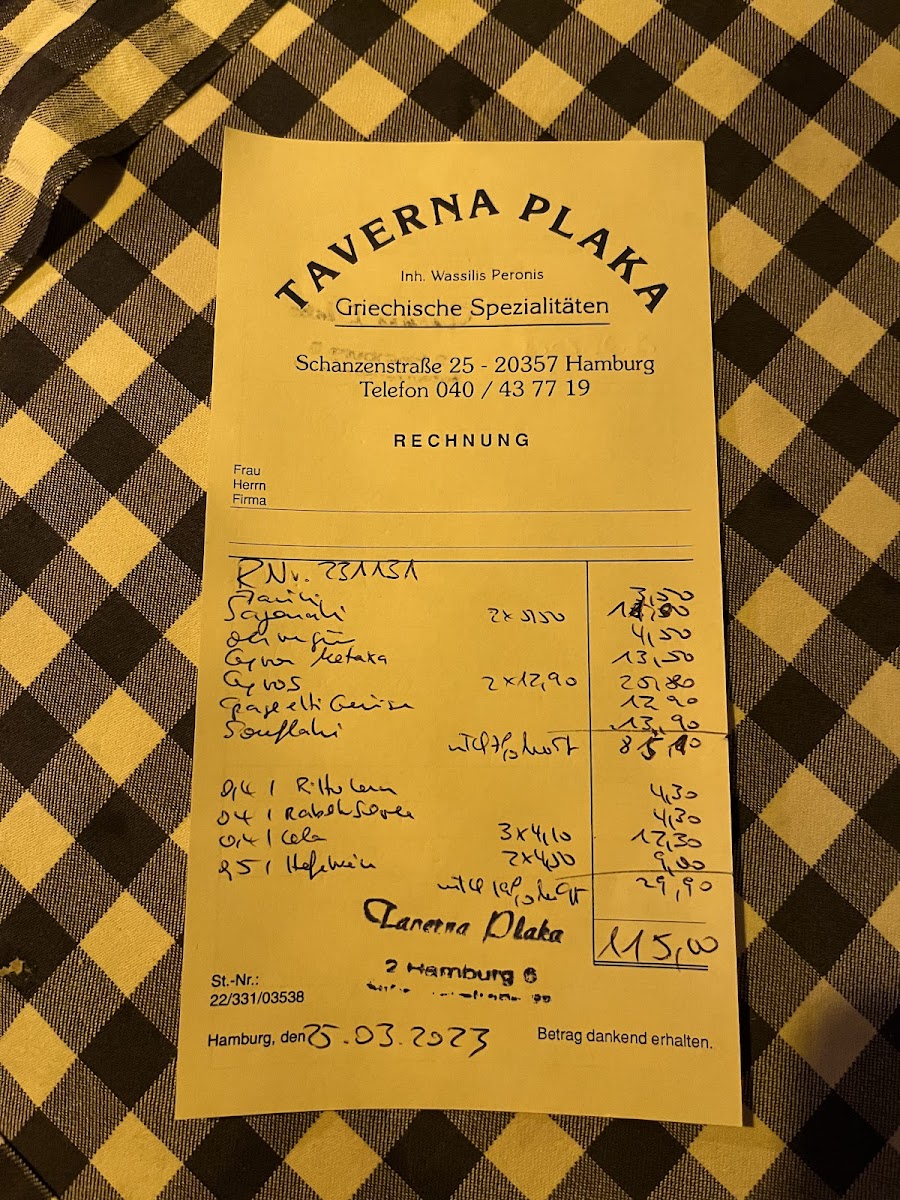 TAVERNA PLAKA
Inh. Wassilis Peronis
Griechische Spezialitäten
Schanzenstraße 25 - 20357 Hamburg
Telefon 040 / 43 77 19
RECHNUNG
Frau
Herrn
Firma
RNr. 231131
3,50
2x5,50
4,50
Gyros Metaxa 13,50
Gyros 2x12,90 25,80
12,90
Souflaki 13,90
85,10
0,4 l 4,30
0,4 l 4,30
0,4 l Cola 3x4,10 12,30
0,5 l Hefewein 2x4,50 9,00
29,90
Taverna Plaka
115,00
2 Hamburg 6
St.-Nr.:
22/331/03538
Hamburg, den 25.03.2023 Betrag dankend erhalten.